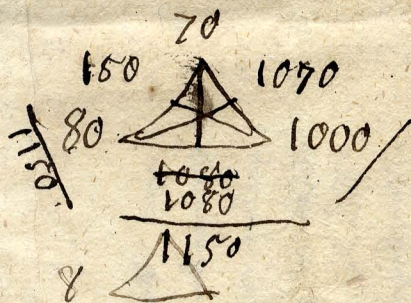 70
150 1070
80 1000
1150
1080
1080
1150
8